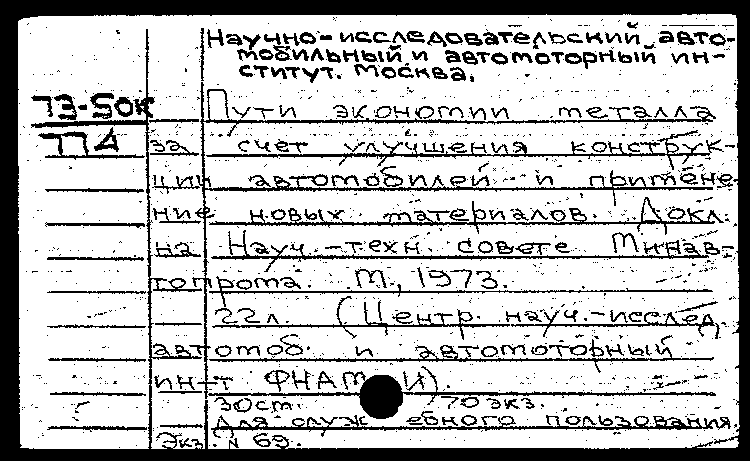 Научно-исследовательский авто-
мобильный и автомоторный ин-
ститут. Москва.
73-50к
774
Пути экономии металла
за счет улучшения конструк-
ции автомобилей и примене-
ние новых материалов. Докл.
на Науч.-техн. совете Минав-
топрома. М., 1973.
22л. (Центр. науч.-исслед.
автомоб. и автомоторный
ин-т ФНАМИ).
30ст. 70экз.
Для служебного пользования.
Экз. N 69.